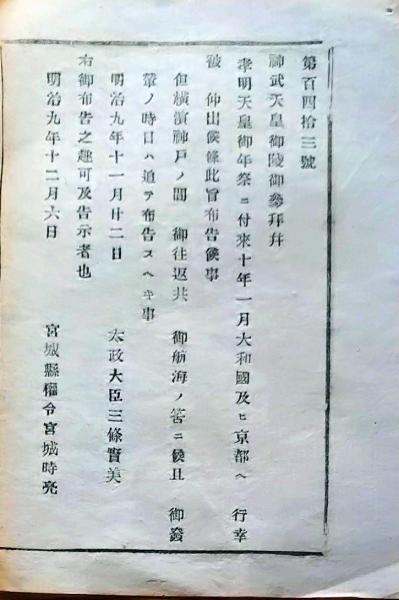 第百四拾三號
神武天皇御陵御參拜幷
孝明天皇御年祭ニ付來十年一月大和國及ヒ京都ヘ 行幸
被 仰出候條此旨布告候事
但横濱神戸ノ間 御往返共 御航海ノ筈ニ候且 御發
輦ノ時日ハ追テ布告スヘキ事
明治九年十一月廿二日 太政大臣三條實美
右御布告之趣可及告示者也
明治九年十二月六日 宮城縣權令宮城時亮